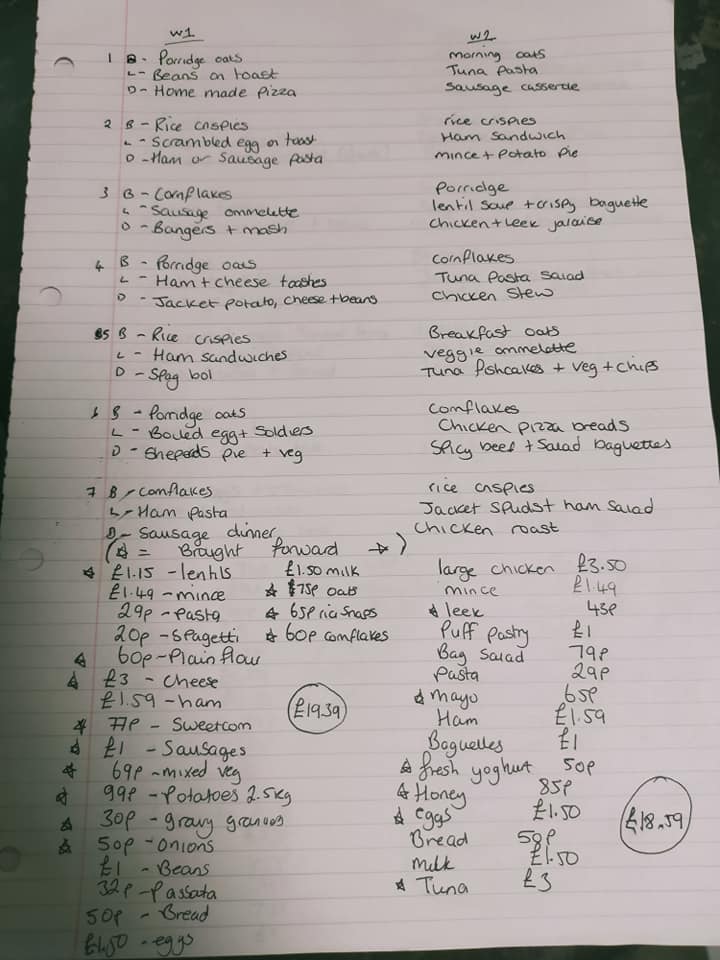 W1 W2
1 B - Porridge oats morning oats
L - Beans on toast Tuna Pasta
D - Home made pizza Sausage casserole
2 B - Rice crispies rice crispies
L - Scrambled egg on toast Ham Sandwich
D - Ham or Sausage pasta mince + Potato Pie
3 B - Cornflakes Porridge
L - Sausage ommelette lentil soup + crispy baguette
D - Bangers + mash chicken + leek jalaise
4 B - Porridge oats cornflakes
L - Ham + cheese toasties Tuna Pasta Salad
D - Jacket potato, cheese + beans Chicken Stew
5 B - Rice crispies Breakfast oats
L - Ham sandwiches veggie ommelette
D - Spag bol Tuna fishcakes + veg + chips
6 B - Porridge oats cornflakes
L - Boiled egg + soldiers Chicken pizza breads
D - Sheperds pie + veg Spicy beef + Salad baguettes
7 B - Cornflakes rice crispies
L - Ham pasta Jacket spuds + ham salad
D - Sausage dinner Chicken roast
(☆ = Brought forward → )
☆ £1.15 - lentils £1.50 milk large chicken £3.50
£1.49 - mince ☆ 75p oats mince £1.49
29p - Pasta ☆ 65p rice snaps ☆ leek 45p
20p - Spagetti ☆ 60p cornflakes Puff Pastry £1
☆ 60p - Plain flow Bag Salad 79p
☆ £3 - Cheese Pasta 29p
£1.59 - ham £19.39 ☆ mayo 65p
☆ 77p - Sweetcorn Ham £1.59
☆ £1 - Sausages Baguettes £1
☆ 69p - mixed veg ☆ fresh yoghurt 50p
☆ 99p - Potatoes 2.5kg ☆ Honey 85p
☆ 30p - gravy granuos ☆ eggs £1.50 £18.59
☆ 50p - Onions Bread 50p
£1 - Beans milk £1.50
32p - Passata ☆ Tuna £3
50p - Bread
£1.50 - eggs